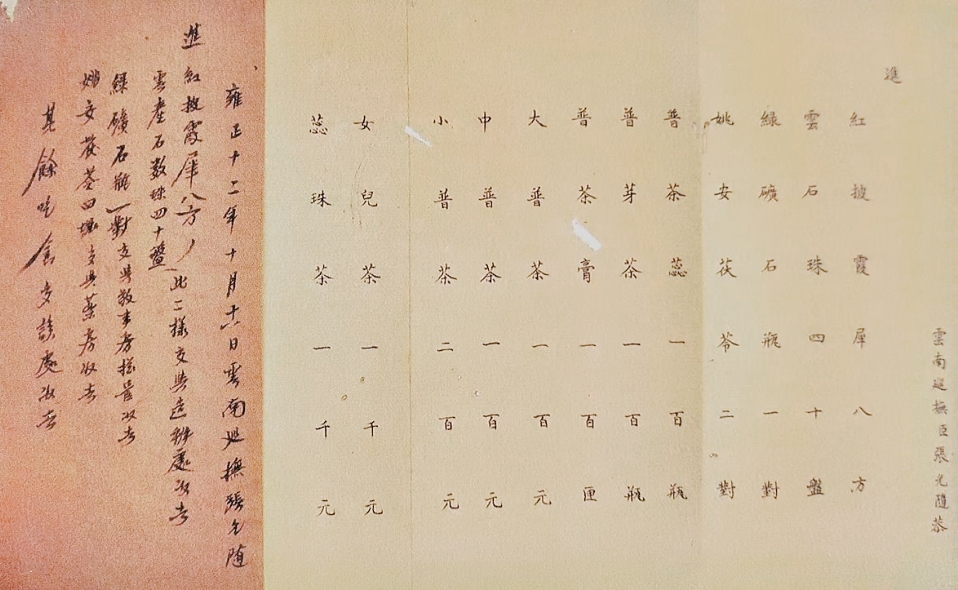 雲南巡撫臣張允隨恭
進
紅披霞犀八方
雲石珠四十盤
綠礦石瓶一對
姚安茯苓二對
普茶蕊一百瓶
普芽茶一百瓶
普茶膏一百匣
大普茶一百元
中普茶一百元
小普茶二百元
女兒茶一千元
蕊珠茶一千元
雍正十二年十月十六日雲南巡撫張允隨
進紅披霞犀八方
雲產石數珠四十盤
此二樣交與造辦處收去
綠礦石瓶一對交與敬事房總管收去
姚安茯苓四塊交與藥房收去
其餘吃食交該處收去